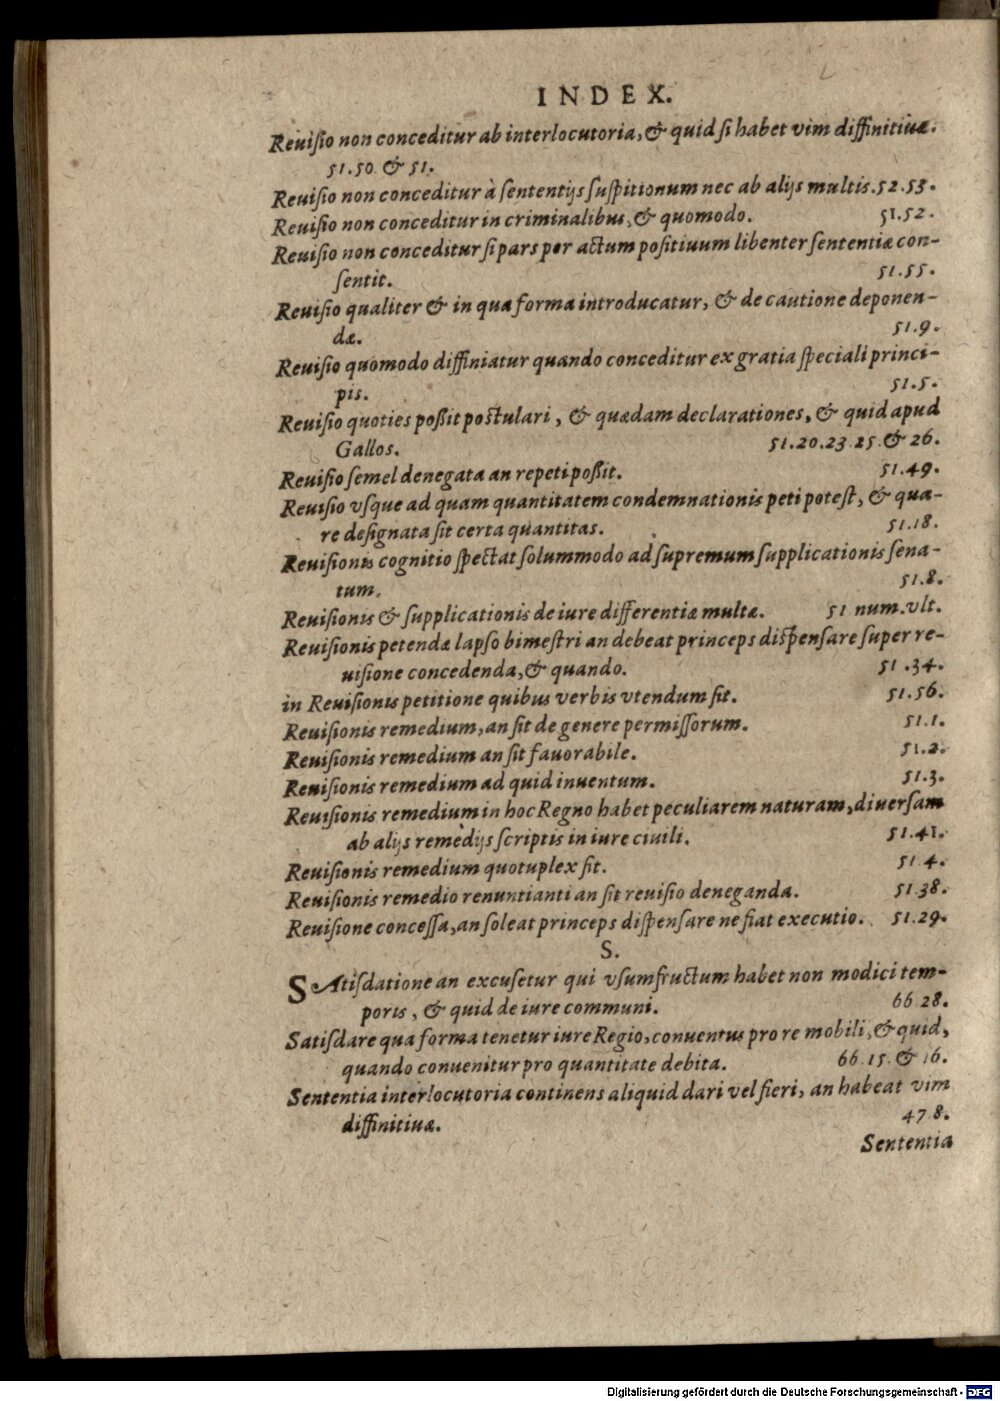 INDEX.
Reuiſio non conceditur ab interlocutoria, & quid ſi habet vim diffinitiuæ.
51.50 & 51.
Reuiſio non conceditur à ſententijs ſuſpitionum nec ab alijs multis. 52.53.
Reuiſio non conceditur in criminalibus, & quomodo. 51.52.
Reuiſio non conceditur ſi pars per actum poſitiuum libenter ſententiæ con-
ſentit. 51.55.
Reuiſio qualiter & in qua forma introducatur, & de cautione deponen-
dæ. 51.9.
Reuiſio quomodo diffiniatur quando conceditur ex gratia ſpeciali princi-
pis. 51.5.
Reuiſio quoties poßit poſtulari, & quædam declarationes, & quid apud
Gallos. 51.20.23.25 & 26.
Reuiſio ſemel denegata an repeti poßit. 51.49.
Reuiſio vſque ad quam quantitatem condemnationis peti poteſt, & qua-
re deſignata ſit certa quantitas. 51.18.
Reuiſionis cognitio ſpectat ſolummodo ad ſupremum ſupplicationis ſena-
tum. 51.8.
Reuiſionis & ſupplicationis de iure differentiæ multæ. 51 num. vlt.
Reuiſionis petendæ lapſo bimeſtri an debeat princeps diſpenſare ſuper re-
uiſione concedenda, & quando. 51.34.
in Reuiſionis petitione quibus verbis vtendum ſit. 51.56.
Reuiſionis remedium, an ſit de genere permiſſorum. 51.1.
Reuiſionis remedium an ſit fauorabile. 51.2.
Reuiſionis remedium ad quid inuentum. 51.3.
Reuiſionis remedium in hoc Regno habet peculiarem naturam, diuerſam
ab alijs remedijs ſcriptis in iure ciuili. 51.41.
Reuiſionis remedium quotuplex ſit. 51.4.
Reuiſionis remedio renuntianti an ſit reuiſio deneganda. 51 38.
Reuiſione conceſſa, an ſoleat princeps diſpenſare ne fiat executio. 51.29.
S.
SAtiſdatione an excuſetur qui vſumfructum habet non modici tem-
poris, & quid de iure communi. 66 28.
Satiſdare qua forma tenetur iure Regio, conuentus pro re mobili, & quid,
quando conuenitur pro quantitate debita. 66.15. & 16.
Sententia interlocutoria continens aliquid dari vel fieri, an habeat vim
diffinitiuæ. 47 8.
Sententia
Digitalisierung gefördert durch die Deutsche Forschungsgemeinschaft - DFG